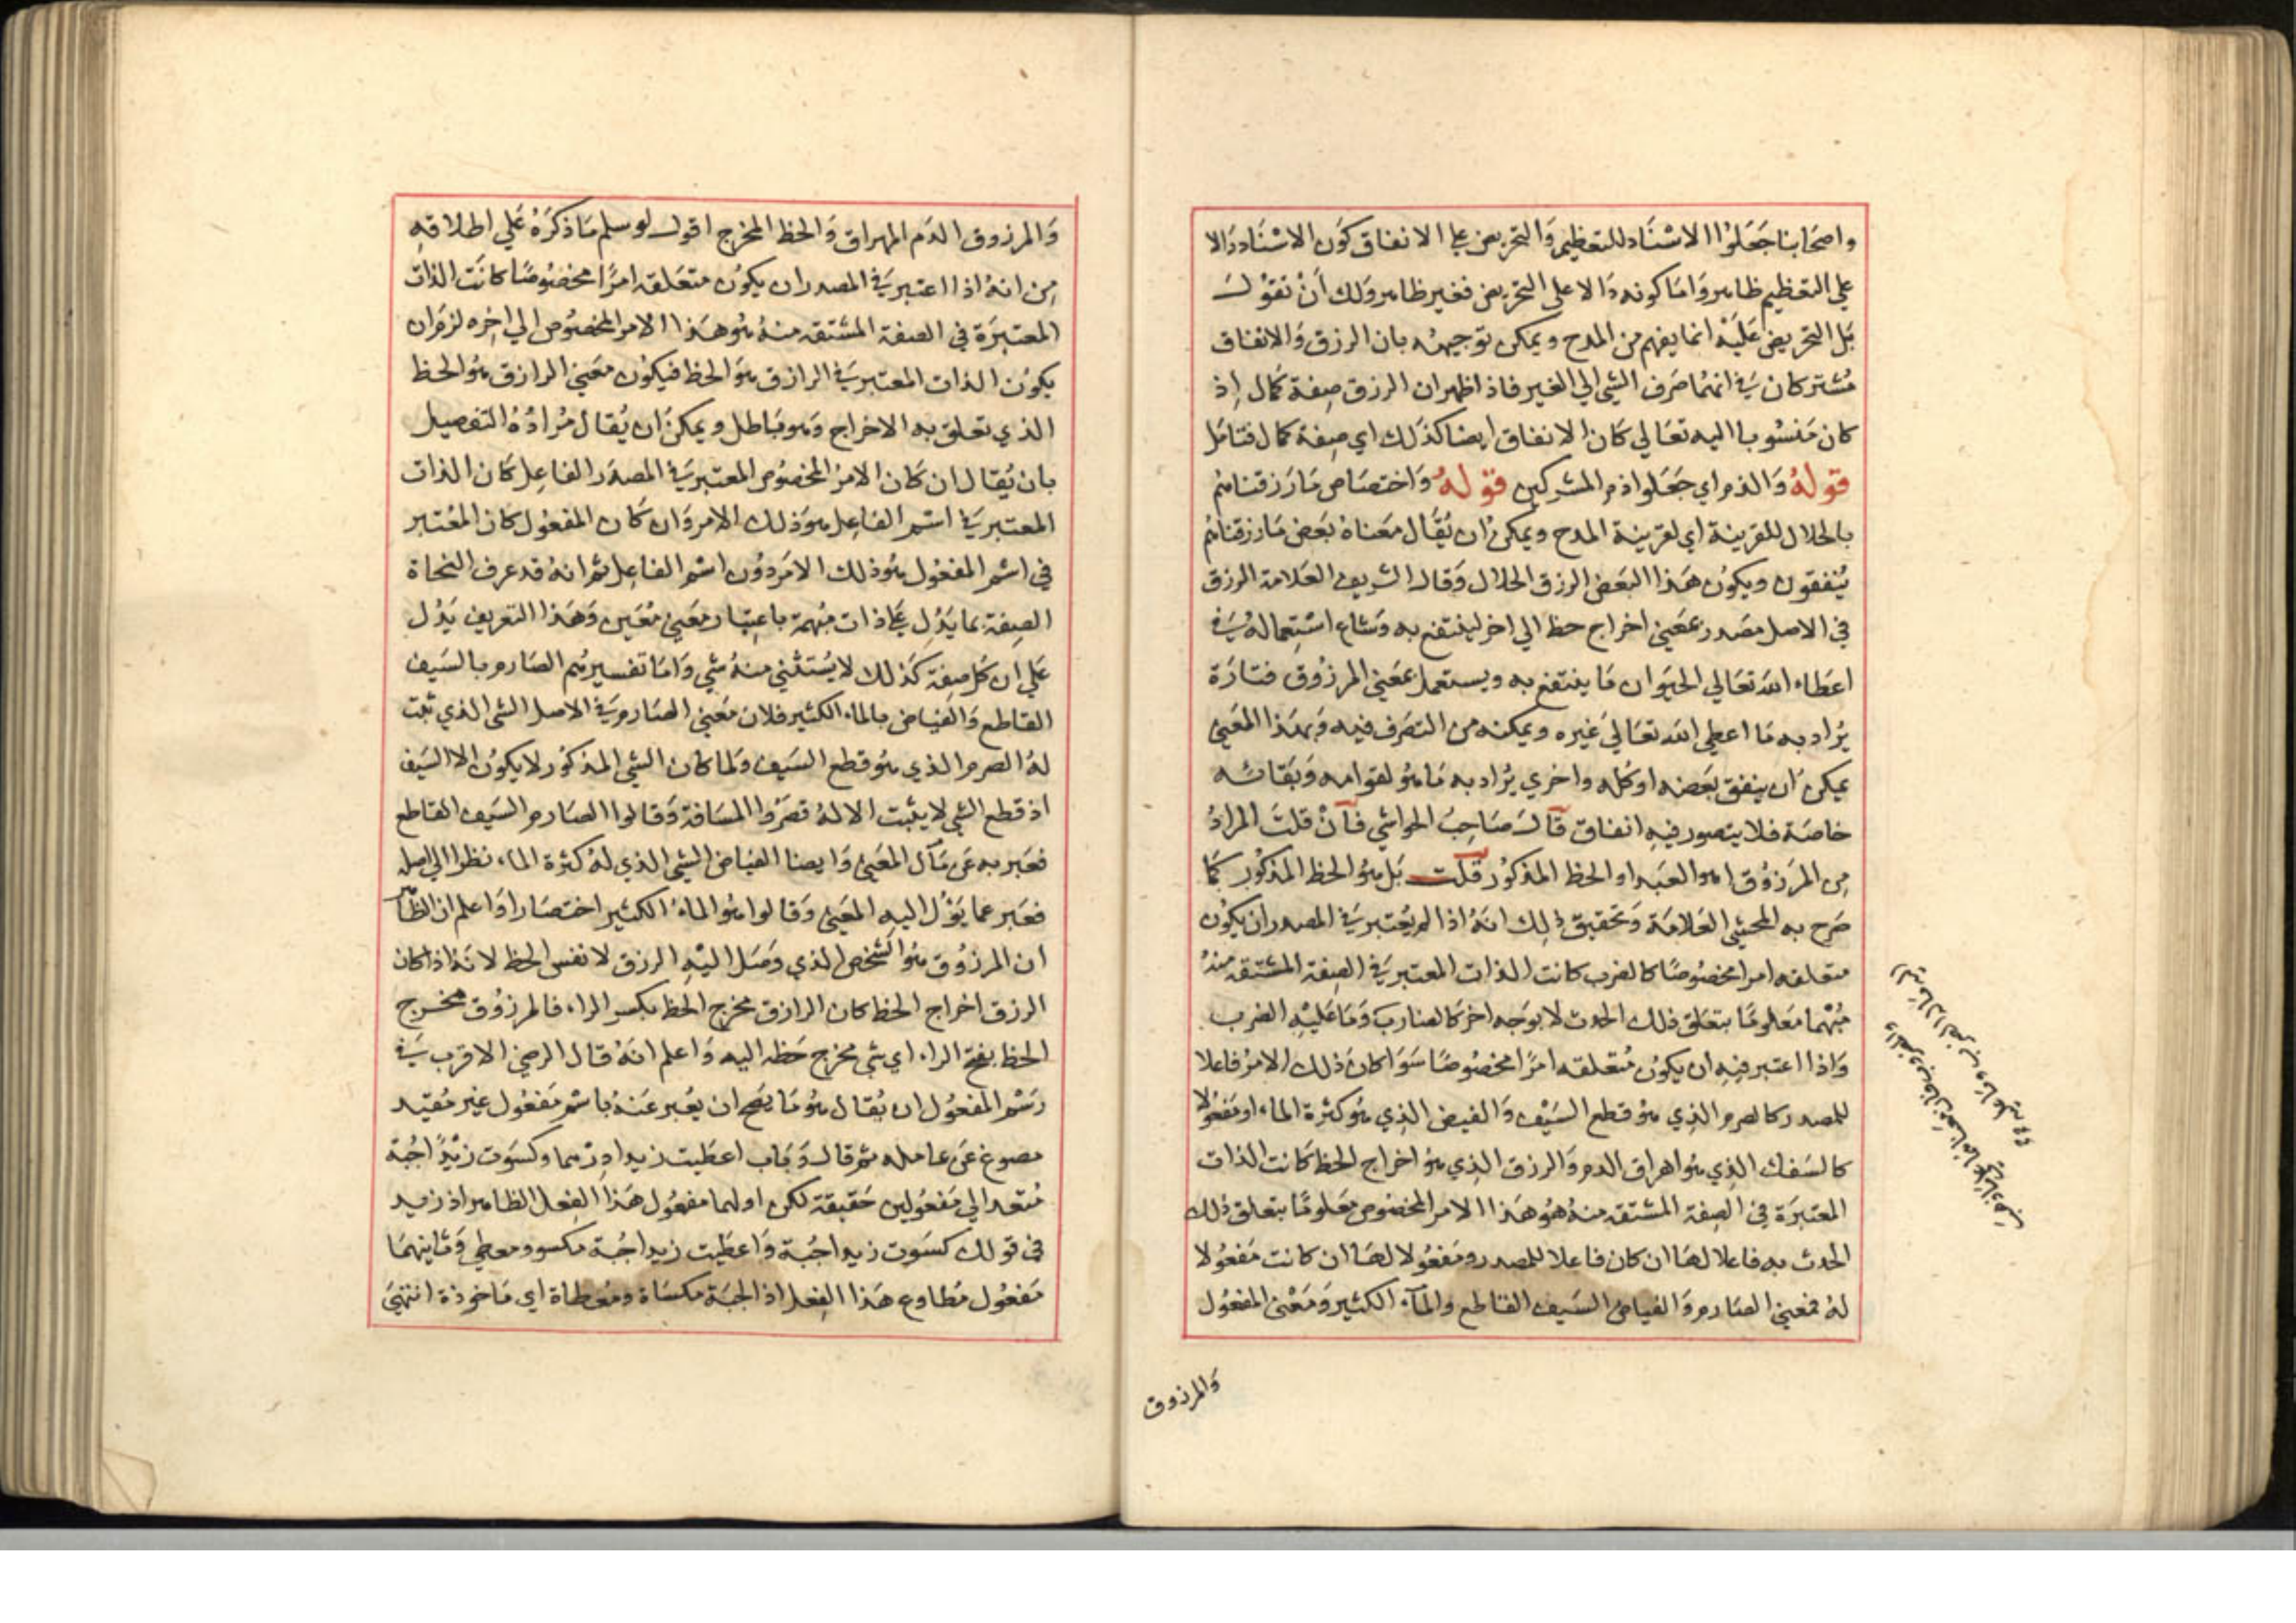 واصحابنا جعلوا الاسناد للتعظيم والتحريض علي الانفاق كون الاسناد دالا
علي التعظيم ظاهر واما كونه دالا علي التحريض فغير ظاهر ولك ان نقول
بل التحريض عليه انما يفهم من المدح ويمكن توجيهه بان الرزق والانفاق
مشتركان في انهما صرف الشي الي الغير فاذا ظهر ان الرزق صفة كمال اذ
كان منسوبا اليه تعالي كان الانفاق ايضا كذلك اي صفة كمال فتامل
قوله والذم اي جعلوا ذم المشركين قوله واختصاص ما رزقناهم
بالحلال للقرينة اي لقرينة المدح ويمكن ان يقال معناه بعض ما رزقناهم
ينفقون ويكون هذا البعض الرزق الحلال وقال الشريف العلامة الرزق
في الاصل مصدر بمعني اخراج حظ الي اخر لينتفع به وشاع استعماله في
اعطاء الله تعالي الحيوان ما ينتفع به ويستعمل بمعني المرزوق فتارة
يراد به ما اعطي الله تعالي غيره ويمكنه من التصرف فيه وبهذا المعني
يمكن ان ينفق بعضه او كله واخري يراد به ما هو لقوامه وبقائه
خاصة فلا يتصور فيه انفاق قال صاحب الحواشي فان قلت المراد
من المرزوق اهو العبد او الحظ المذكور قلت بل هو الحظ المذكور كما
صرح به المحشي العلامة وتحقيق ذلك انه اذا لم يعتبر في المصدر ان يكون
متعلقه امرا مخصوصا كالضرب كانت الذات المعتبر في الصفة المشتقة منه
مبهما معلوما بتعلق ذلك الحدث لا بوجه اخر كالضارب وما عليه الضرب
واذا اعتبر فيه ان يكون متعلقه امرا مخصوصا سوا كان ذلك الامر فاعلا
للمصدر كالصرم الذي هو قطع السيف والفيض الذي هو كثرة الماء او مفعولا
كالسفك الذي هو اهراق الدم والرزق الذي هو اخراج الحظ كانت الذات
المعتبرة في الصفة المشتقة منه هو هذا الامر المخصوص معلوما بتعلق ذلك
الحدث به فاعلا لها ان كان فاعلا للمصدر ومفعولا لها ان كانت مفعولا
له فمعني الصارم والفياض السيف القاطع والماء الكثير ومعني المفعول
والمرزوق
والمرزوق الدم المهراق والحظ المخرج اقول لو سلم ما ذكره علي اطلاقه
من انه اذا اعتبر في المصدر ان يكون متعلقه امرا مخصوصا كانت الذات
المعتبرة في الصفة المشتقه منه هو هذا الامر المخصوص الي اخره لزم ان
يكون الذات المعتبر في الرازق هو الحظ فيكون معني الرازق هو الحظ
الذي تعلق به الاخراج وهو باطل ويمكن ان يقال مراده التفصيل
بان يقال ان كان الامر المخصوص المعتبر في المصدر الفاعل كان الذات
المعتبر في اسم الفاعل هو ذلك الامر وان كان المفعول كان المعتبر
في اسم المفعول هو ذلك الامر دون اسم الفاعل ثم انه قد عرف النحاة
الصفة بما يدل علي ذات مبهمة باعتبار معني معين وهذا التعريف يدل
علي ان كل صفة كذلك لا يستثني منه شي واما تفسيرهم الصارم بالسيف
القاطع والفياض بالماء الكثير فلان معني الصارم في الاصل الشي الذي ثبت
له الصرم الذي هو قطع السيف ولما كان الشي المذكور لا يكون الا السيف
اذ قطع الشي لا يثبت الا له قصروا المسافة وقالوا الصارم السيف القاطع
فعبر به عن مآل المعني وايضا الفياض الشي الذي له كثرة الماء نظرا الي اصله
فعبر عما يؤل اليه المعني وقالوا هو الماء الكثير اختصارا واعلم ان الظاهر
ان المرزوق هو الشخص الذي وصل اليه الرزق لا نفس الحظ لانه اذا كان
الرزق اخراج الحظ كان الرازق مخرج الحظ بكسر الراء فالمرزوق مخرج
الحظ بفتح الراء اي شي مخرج حظه اليه واعلم انه قال الرضي الاقرب في
رسم المفعول ان يقال هو ما يصح ان يعبر عنه باسم مفعول غير مقيد
مصوغ عن عامله ثم قال وباب اعطيت زيدا درهما وكسوت زيدا جبة
متعد الي مفعولين حقيقة لكن اولهما مفعول هذا الفعل الظاهر اذ زيد
في قولك كسوت زيدا جبة واعطيت زيدا جبة مكسو ومعطي وثانيهما
مفعول مطاوع هذا الفعل اذ الجبة مكساة ومعطاة اي ماخوذة انتهي